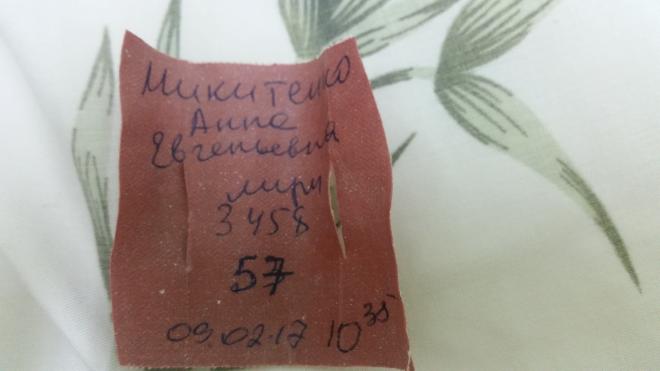 Микитенко
Анна
Евгеньевна
3458
57
09.02.17 10 35